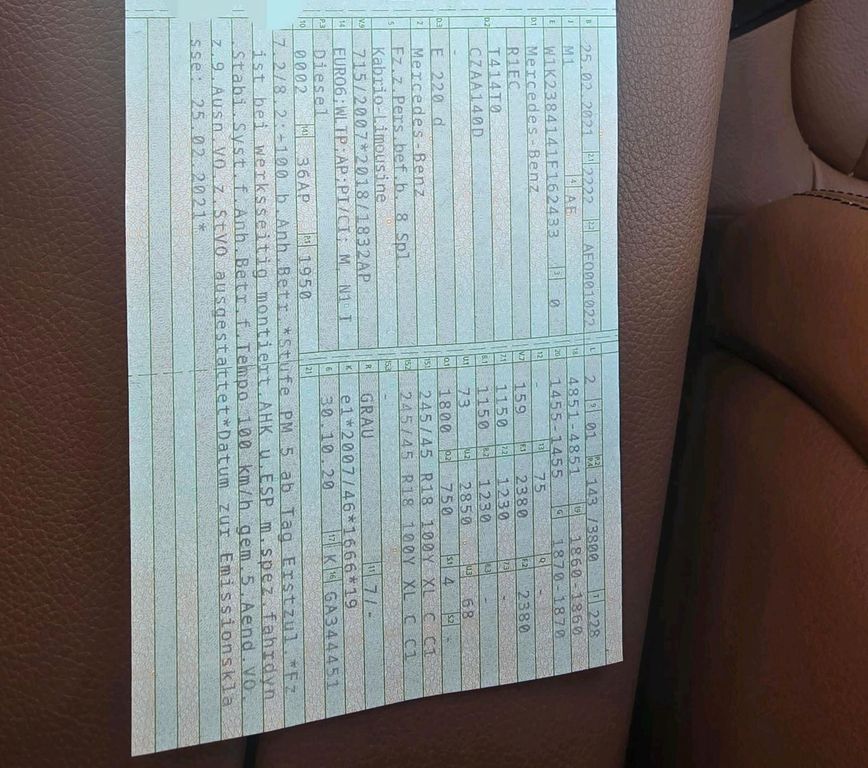 B 25.02.2021 2.1 2222 2.2 AFQ001022
J M1 4 AE
E W1K2384141F162433 3 0
D.1 Mercedes-Benz
R1EC
D.2 T414T0
CZAA140D
-
D.3 E 220 d
2 Mercedes-Benz
5 Fz.z.Pers.bef.b. 8 Spl.
Kabrio-Limousine
V.9 715/2007*2018/1832AP
14 EURO6;WLTP;AP;PI/CI; M, N1 I
P.3 Diesel
10 0002 14.1 36AP P.1 1950
L 2 9 01 P.2 P.4 143 /3800 T 228
18 4851-4851 19 1860-1860
20 1455-1455 G 1870-1870
12 - 13 75 Q -
V.7 159 F.1 2380 F.2 2380
7.1 1150 7.2 1230 7.3 -
8.1 1150 8.2 1230 8.3 -
U.1 73 U.2 2850 U.3 68
O.1 1800 O.2 750 S.1 4 S.2 -
15.1 245/45 R18 100Y XL C C1
15.2 245/45 R18 100Y XL C C1
15.3 -
R GRAU 11 7/-
K e1*2007/46*1666*19
6 30.10.20 17 K 16 GA344451
21
7.2/8.2:+100 b.Anh.Betr.*Stufe PM 5 ab Tag Erstzul.*Fz
ist bei werksseitig montiert.AHK u.ESP m.spez.fahrdyn
.Stabi.Syst.f.Anh.Betr.f.Tempo 100 km/h gem.5.Aend.VO.
z.9.Ausn.VO.z.StVO ausgestattet*Datum zur Emissionskla
sse: 25.02.2021*